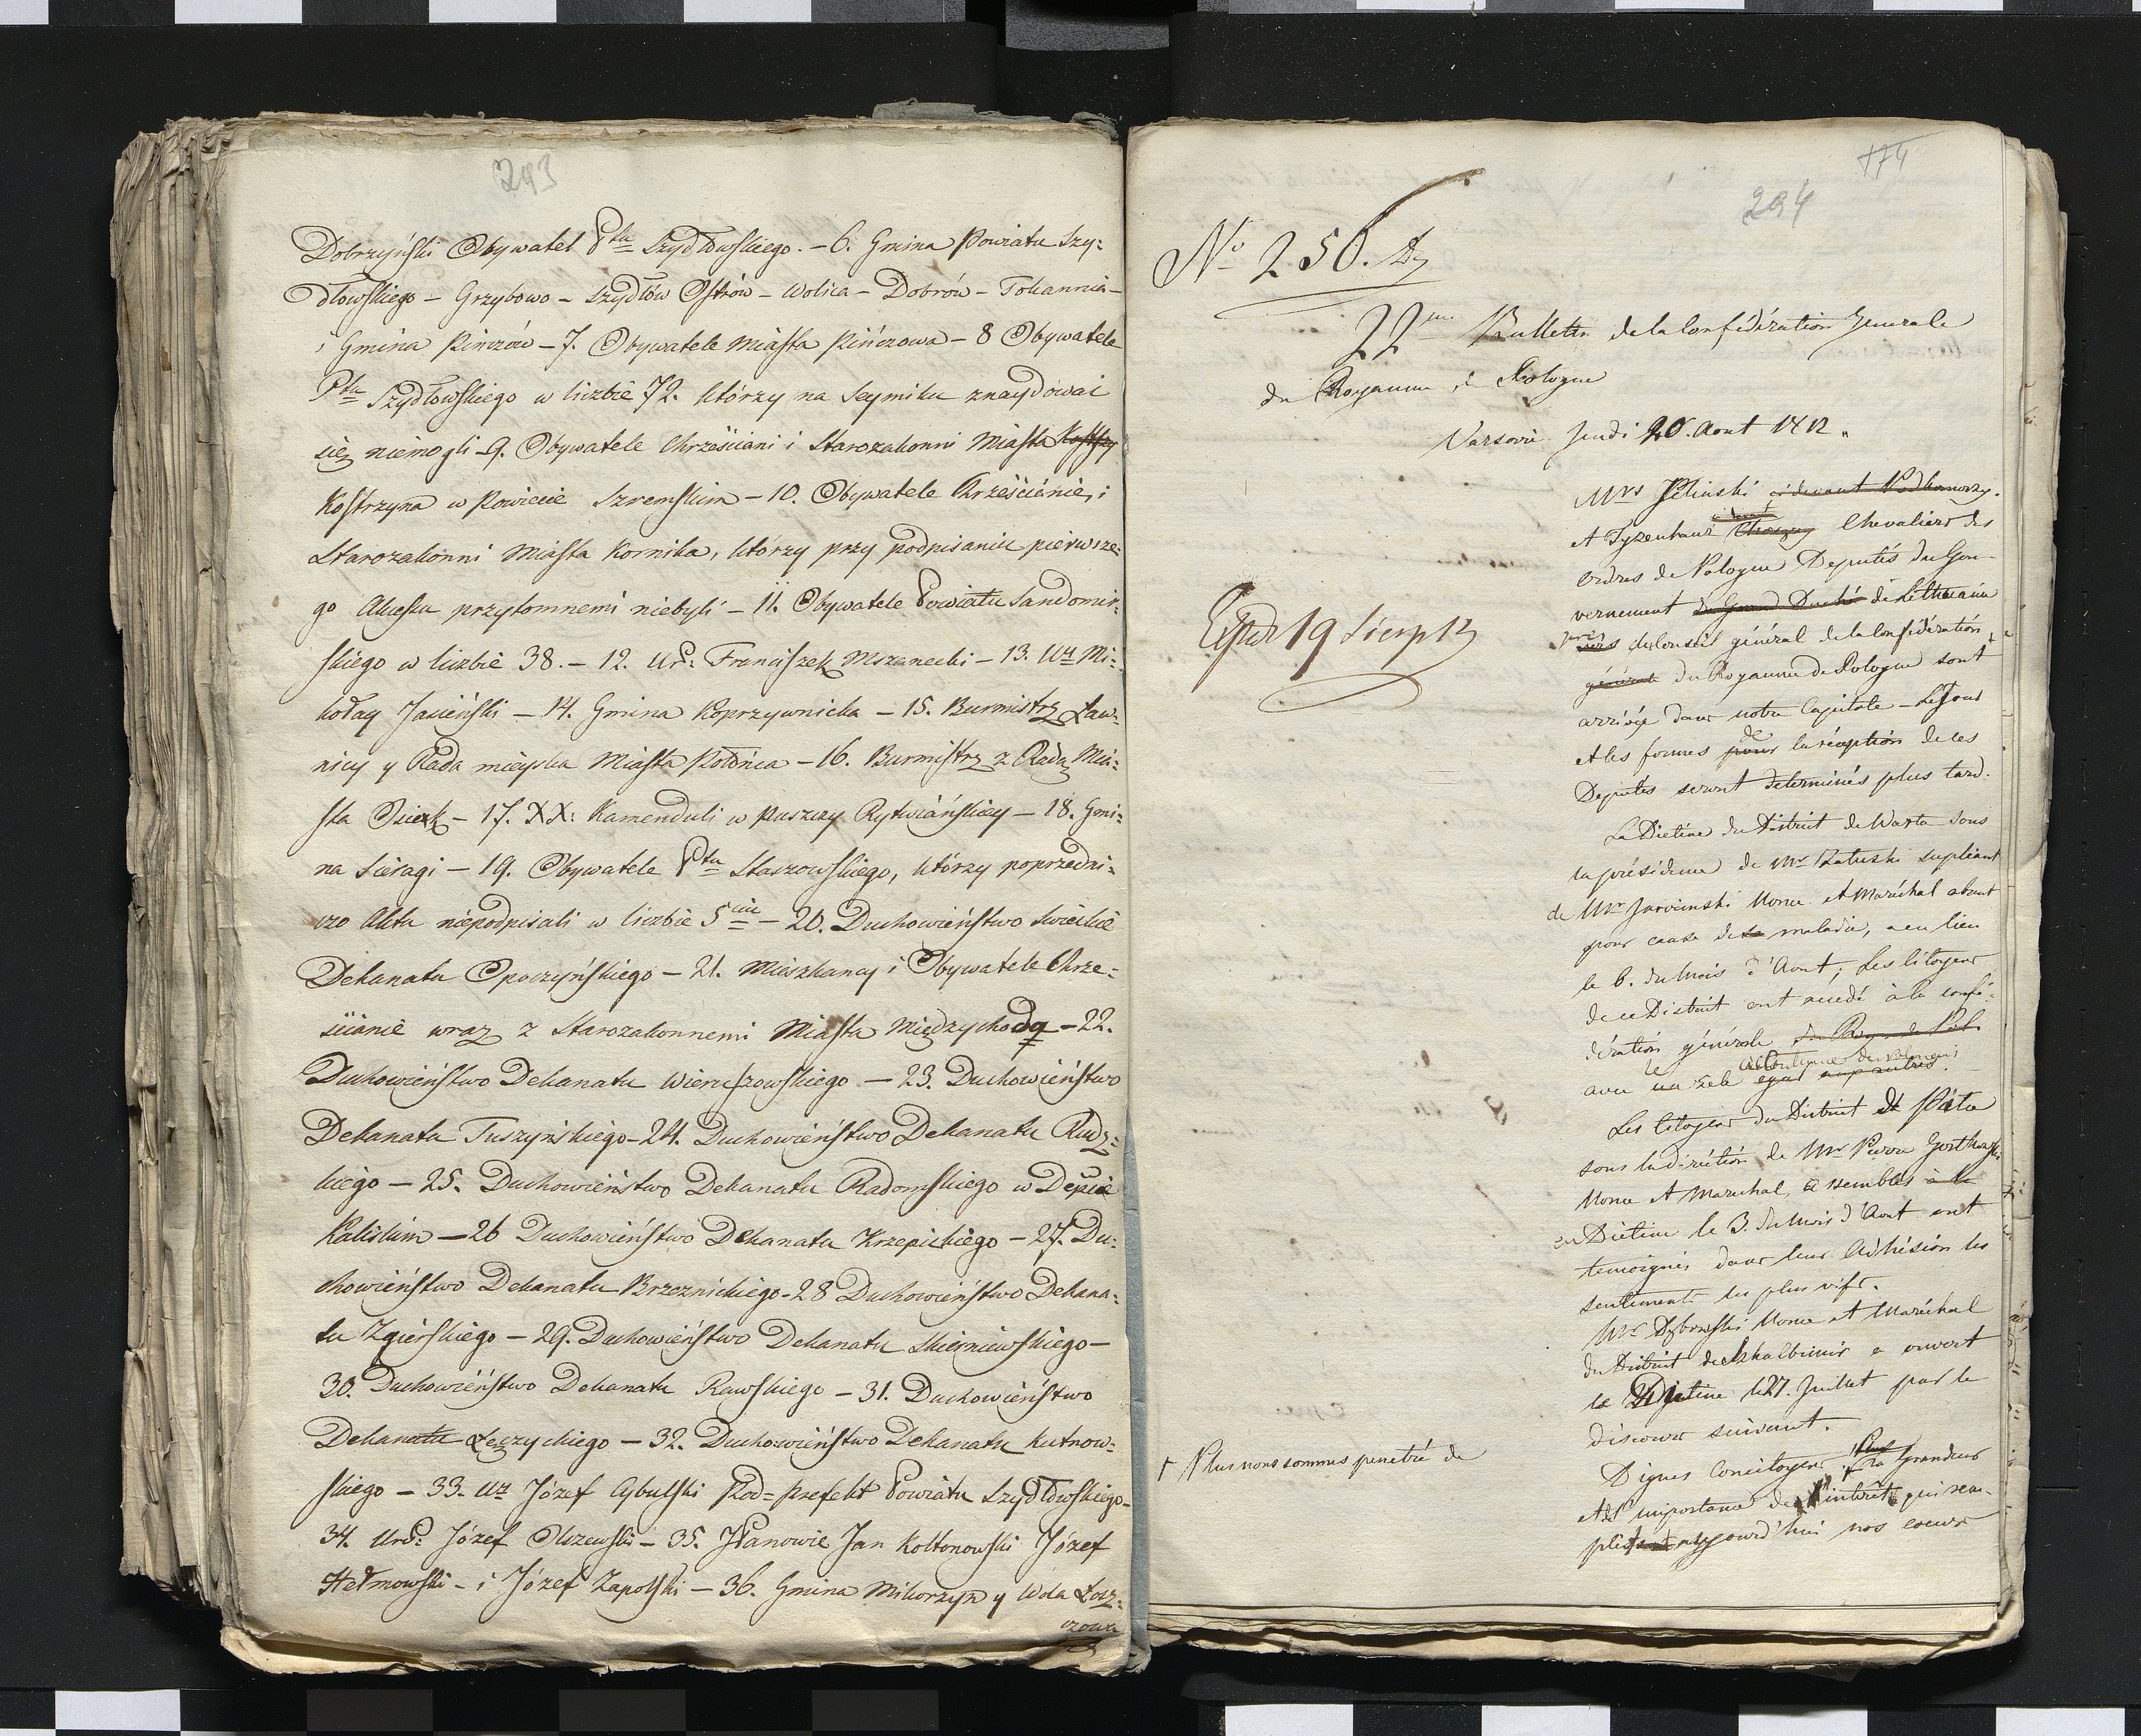 293
Dobrzyński Obywatel Ptu Szydłowskiego. - 6. Gmina Powiatu Szy=
dłowskiego - Grzybowo - Szydłów Ostrów - Wolica - Dobrów - Tokarnia -
i Gmina Pinczów - 7. Obywatele Miasta Pińczowa - 8 Obywatele
Ptu Szydłowskiego w liczbie 72. którzy na Seymiku znaydować
się niemogli - 9. Obywatele Chrześciani i Starozakonni Miasta
Kostrzyna w Powiecie Szremskim - 10. Obywatele Chrześcianie, i
Starozakonni Miasta Kornika, którzy przy podpisaniu pierwsze=
go Akcesu przytomnemi niebyli - 11. Obywatele Powiatu Sandomir=
skiego w liczbie 38. - 12. Ur: Franciszek Mszanecki - 13. Ur Mi=
kołay Jasieński - 14. Gmina Koprzywnicka - 15. Burmistrz Ław=
nicy y Rada mieyska Miasta Połońca - 16. Burmistrz z Radą Mia=
sta Osiek - 17. XX: Kamenduli w puszczy Rytwiańskiey - 18. Gmi=
na Sieragi - 19. Obywatele Ptu Staszowskiego, którzy poprzedni=
czo Aktu niepodpisali w liczbie 5ciu - 20. Duchowieństwo Swieckie
Dekanatu Opoczyńskiego - 21. Mieszkancy i Obywatele Chrze=
ścianie wraz z Starozakonnemi Miasta Międzychoda - 22.
Duchowieństwo Dekanatu Wieruszowskiego - 23. Duchowieństwo
Dekanatu Tuszyńskiego - 24. Duchowieństwo Dekanatu Rudz=
kiego - 25. Duchowieństwo Dekanatu Radomskiego w Depcie
Kaliskim - 26 Duchowieństwo Dekanatu Krzepickiego - 27. Du=
chowieństwo Dekanatu Brzeznickiego - 28 Duchowieństwo Dekana=
tu Zgierskiego - 29. Duchowieństwo Dekanatu Skierniewskiego -
30. Duchowieństwo Dekanatu Rawskiego - 31. Duchowieństwo
Dekanatu Łęczyckiego - 32. Duchowieństwo Dekanatu Kutnow=
skiego - 33. Ur Józef Cybulski Pod=Prefekt Powiatu Szydłowskiego -
34. Urd: Józef Olszewski - 35. JPanowie Jan Kołtonowski Józef
Hełmowski - i Józef Zapolski - 36. Gmina Mikorzyn y Wola Łasz=
czowa
174
294
No 256.
22me Bulletin de la Confédération Generale
du Royaume de Pologne
Varsovie Jeudi 20. Aout 1812.
Exped 19 Sierp
Mrs Pilinski ci devant Podkomorzy.
et Tyzenhauz Chevaliers des
ordres de Pologne Deputés du Gou-
vernement du Grand Duché de Lithuanie
près du Conseil général de la Confédération
générale du Royaume de Pologne sont
arrivés dans notre Capitale - Le Jour
et les formes pour de la réception de ces
Deputés seront determinés plus tard.
La Dietine du District de Warta sous
la présidence de Mr Zaluski supléant
de Mr Jarocinski Nonce et Maréchal absent
pour cause de maladie, a eu lieu
le 6. du Mois d'Aout; Les Citoyens
de ce District ont accedé à la confé-
dération générale
avec un zèle egal aux autres.
Les Citoyens du District de
sous la diréction de Mr Pierre
Nonce et Marechal, assemblés à la
en Dietine le 3. du Mois d'Aout ont
temoignés dans leur Adhésion les
sentiments les plus vifs.
Mr Dębowski Nonce et Maréchal
du District de Szkalbimir a ouvert
la Dietine le 27. Juillet par le
discours suivant.
Dignes Concitoyens! Plus la Grandeur
et l'importance de l'intérêt qui rem-
plit aujourd'hui nos coeurs
+ Plus nous sommes penetré de